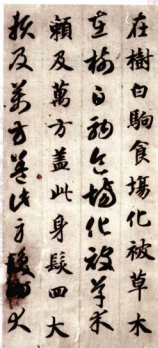 在樹白駒食塲化被草木
在樹白駒食場化被草木
賴及萬方盖此身髮四大
賴及萬方盖此身髮四大